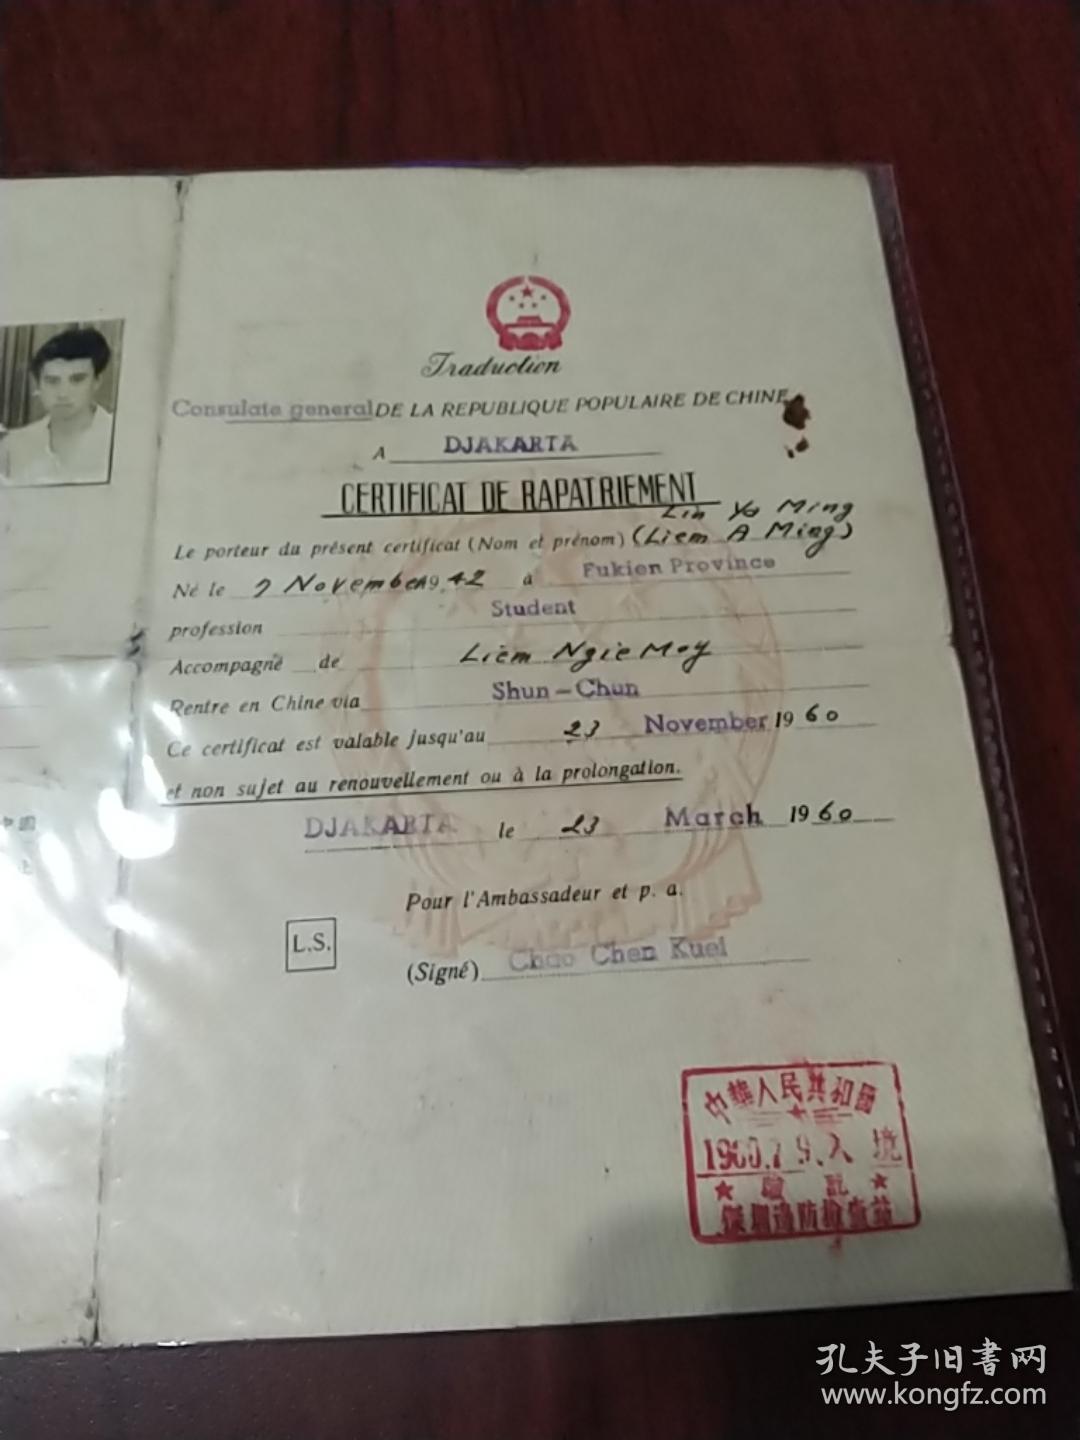 Traduction
Consulate general DE LA REPUBLIQUE POPULAIRE DE CHINE
A DJAKARTA
CERTIFICAT DE RAPATRIEMENT
Lin Ya Ming
Le porteur du présent certificat (Nom et prénom) (Liem A Ming)
Né le 7 November 19 42 à Fukien Province
profession Student
Accompagné de Liem Ngie Moy
Rentre en Chine via Shun-Chun
Ce certificat est valable jusqu'au 23 November 19 60
et non sujet au renouvellement ou à la prolongation.
DJAKARTA le 23 March 19 60
Pour l'Ambassadeur et p. a.
L.S.
(Signé) Chao Chen Kuei
中華人民共和國
1960.7 9.入 境
深圳边防检查站
孔夫子旧書网
www.kongfz.com